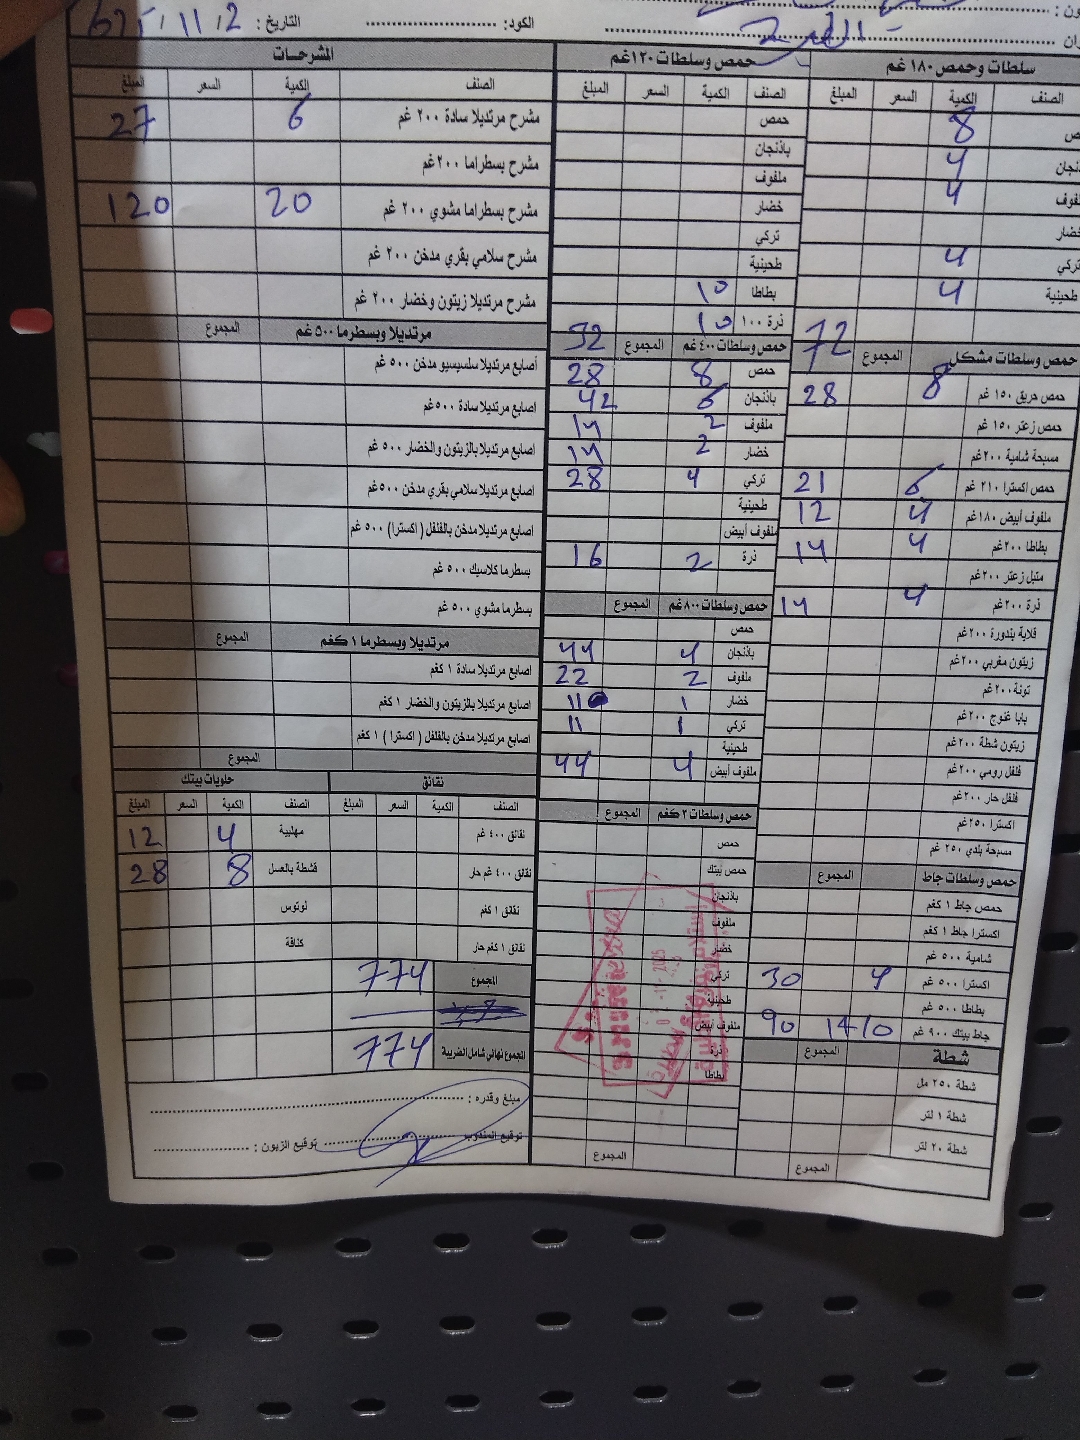 التاريخ : 2 / 11 / 2025 الكود:
سلطات وحمص ١٨٠ غم
الصنف الكمية السعر المبلغ
8
4
4
خضار
تركي 4
طحينية 4
72
حمص وسلطات مشكل المجموع
حمص حريق ١٥٠ غم 8 28
حمص زعتر ١٥٠ غم
مسبحة شامية ٢٠٠غم
حمص اكسترا ٢١٠ غم 6 21
ملفوف أبيض ١٨٠غم 4 12
بطاطا ٢٠٠غم 4 14
متبل زعتر ٢٠٠غم
ذرة ٢٠٠غم 4 14
قلاية بندورة ٢٠٠غم
زيتون مغربي ٢٠٠غم
تونة ٢٠٠غم
بابا غنوج ٢٠٠غم
زيتون شطة ٢٠٠غم
فلفل رومي ٢٠٠غم
فلفل حار ٢٠٠غم
اكسترا ٢٥٠غم
مسبحة بلدي ٢٥٠ غم
حمص وسلطات جاط المجموع
حمص جاط ١ كغم
اكسترا جاط ١ كغم
شامية ٥٠٠ غم
اكسترا ٥٠٠ غم 4 30
بطاطا ٥٠٠ غم
جاط بيتك ٩٠٠ غم 90
شطة المجموع
شطة ٢٥٠ مل
شطة ١ لتر
شطة ٢٠ لتر
المجموع
حمص وسلطات ١٢٠غم
الصنف الكمية السعر المبلغ
حمص
باذنجان
ملفوف
خضار
تركي
طحينية
بطاطا 10
ذرة ١٠٠ 10
32
حمص وسلطات ٤٠٠غم المجموع
حمص 8 28
باذنجان 6 42
ملفوف 2 14
خضار 2 14
تركي 4 28
طحينية
ملفوف أبيض
ذرة 2 16
حمص وسلطات ٨٠٠غم المجموع
حمص
باذنجان 4 44
ملفوف 2 22
خضار 1 11
تركي 1 11
طحينية
ملفوف أبيض 4 44
حمص وسلطات ٢ كغم المجموع
حمص
حمص بيتك
باذنجان
ملفوف
خضار
تركي
طحينية
ملفوف أبيض
ذرة
بطاطا
المجموع
المشرحات
الصنف الكمية السعر المبلغ
مشرح مرتديلا سادة ٢٠٠ غم 6 27
مشرح بسطراما ٢٠٠غم
مشرح بسطراما مشوي ٢٠٠ غم 20 120
مشرح سلامي بقري مدخن ٢٠٠ غم
مشرح مرتديلا زيتون وخضار ٢٠٠ غم
مرتديلا وبسطرما ٥٠٠ غم المجموع
أصابع مرتديلا سلسيسيو مدخن ٥٠٠ غم
اصابع مرتديلا سادة ٥٠٠غم
اصابع مرتديلا بالزيتون والخضار ٥٠٠ غم
اصابع مرتديلا سلامي بقري مدخن ٥٠٠غم
اصابع مرتديلا مدخن بالفلفل ( اكسترا ) ٥٠٠ غم
بسطرما كلاسيك ٥٠٠ غم
بسطرما مشوي ٥٠٠ غم
مرتديلا وبسطرما ١ كغم المجموع
اصابع مرتديلا سادة ١ كغم
اصابع مرتديلا بالزيتون والخضار ١ كغم
اصابع مرتديلا مدخن بالفلفل ( اكسترا ) ١ كغم
المجموع
نقانق حلويات بيتك
الصنف الكمية السعر المبلغ الصنف الكمية السعر المبلغ
نقانق ٤٠٠ غم مهلبية 4 12
نقانق ٤٠٠ غم حار قشطة بالعسل 8 28
نقانق ١ كغم لوتوس
نقانق ١ كغم حار كنافة
المجموع 774
المجموع نهائي شامل الضريبة 774
مبلغ وقدره :
توقيع المندوب توقيع الزبون :